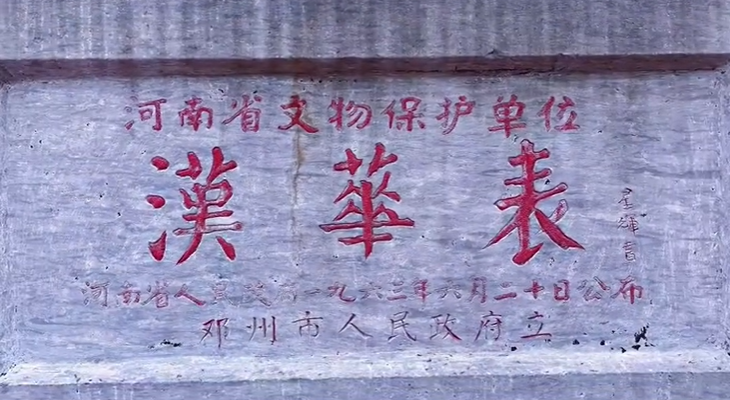 河南省文物保护单位
漢華表
星輝書
河南省人民政府一九六三年六月二十日公布
邓州市人民政府立